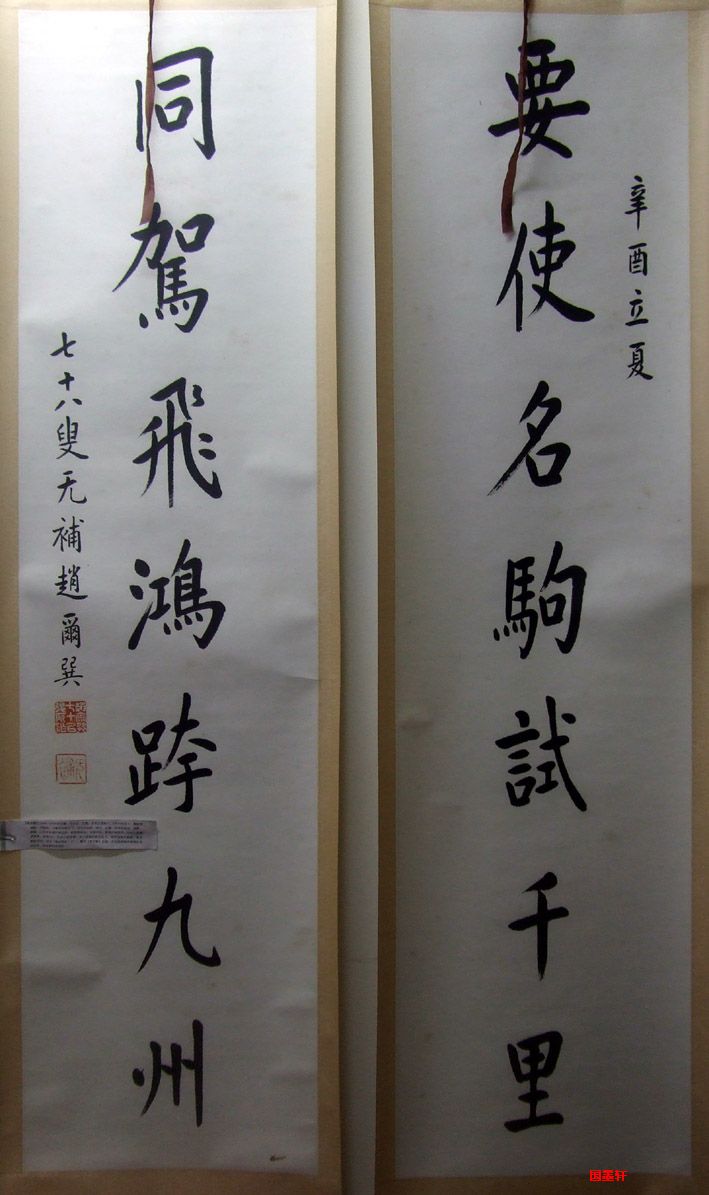 辛酉立夏
要使名駒試千里
同駕飛鴻跨九州
七十八叟无補趙爾巽
国墨轩